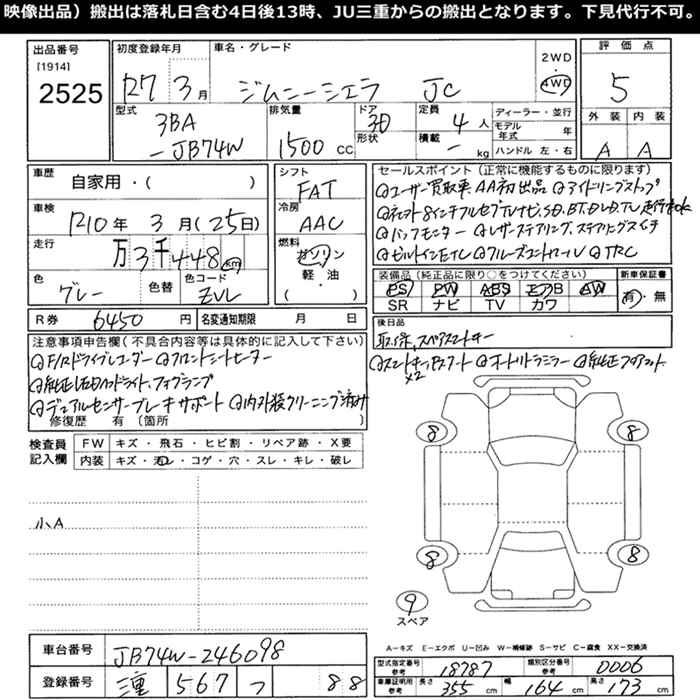 映像出品）搬出は落札日含む4日後13時、JU三重からの搬出となります。下見代行不可。
出品番号
[1914]
2525
初度登録年月
R7 3月
車名・グレード
ジムニーシエラ JC
2WD
・
4WD
評価点
5
外装 内装
A A
型式
3BA
-JB74W
排気量
1500 CC
ドア
形状
3D
定員
4人
積載
- kg
ディーラー・並行
モデル
年式 年
ハンドル 左・右
車歴
自家用・( )
車検
R10年 3月(25日)
走行
万3千448km
色
グレー
色替
色コード
ZVL
シフト
FAT
冷房
AAC
燃料
ガソリン
軽・油
( )
セールスポイント（正常に機能するものに限ります）
ユーザー買取車 AA初出品 アイドリングストップ
ネオマト8インチフルセグTVナビ,SD,BT,DVD,TV走行まOK
バックモニター レザーステアリング,ステアリングスイチ
ビルトインETC クルーズコントロール TRC
装備品（純正品に限り○をつけてください）
PS PW ABS エアB AW
SR ナビ TV カワ
新車保証書
有・無
R券 6450円
名変通知期限 月 日
後日品
取保,スペアスマートキー
注意事項申告欄（不具合内容等は具体的に記入して下さい）
F/Rドライブレコーダー フロントシートヒーター
純正LEDヘッドライト,フォグランプ
デュアルセンサーブレーキサポート 内外装クリーニング済み
修復歴 有（箇所
スマートキーPスタート オートリトラミラー 純正フロアマット
×2
検査員
記入欄
FW キズ・飛石・ヒビ割・リペア跡・X要
内装 キズ・汚レ・コゲ・穴・スレ・キレ・破レ
小A
8
8
8
8
9
スペア
A－キズ E－エクボ U－凹み W－補修跡 S－サビ C－腐食 XX－交換済
車台番号 JB74W-246098
登録番号 三重 567 つ 88
型式指定番号
参考
18787
類別区分番号
参考
0006
車庫証明用
参考
長さ 355cm 幅 164cm 高さ 173cm